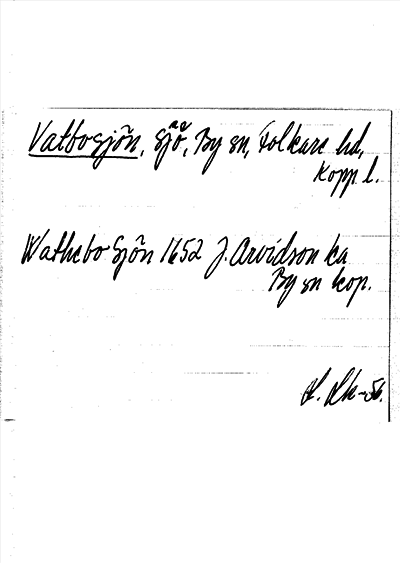 Vatbosjön, sjö, By sn, Folkare hd,
Kopp. l.
Wathebo Sjön 1652 J. Arvidson ka
By sn kop.